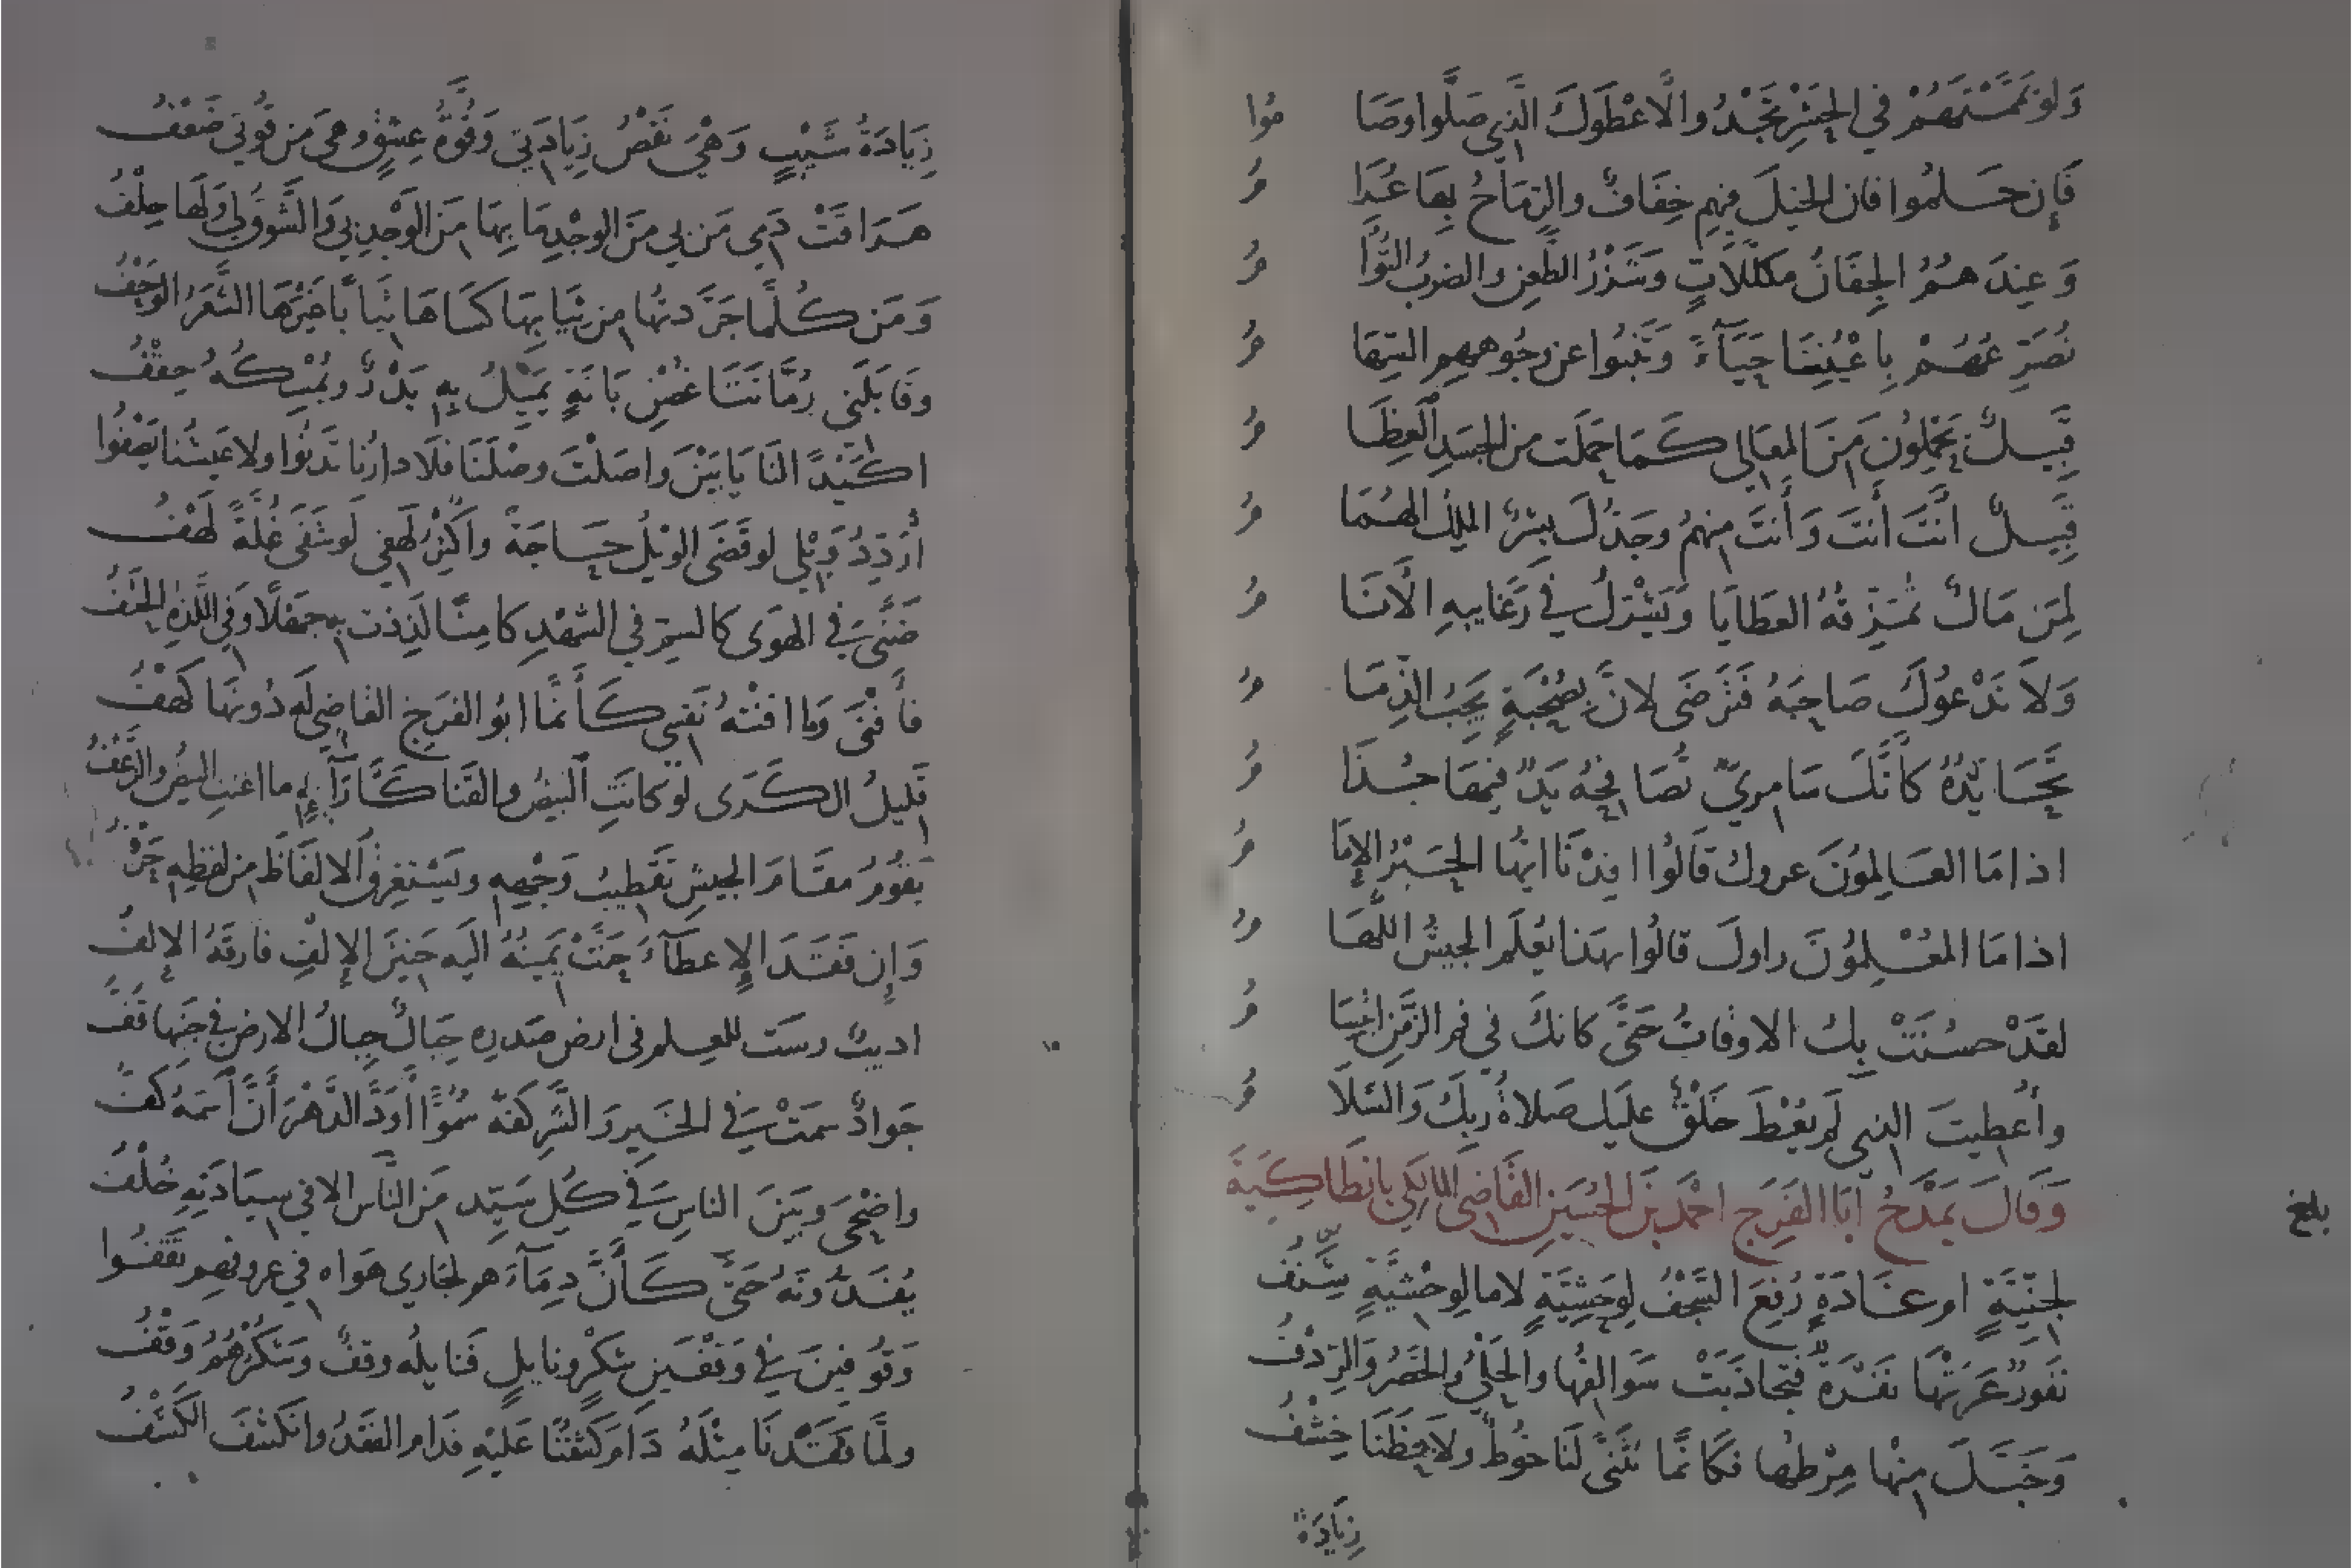 وَلَوْ يَمَّمْتَهُمْ في الحَشْرِ تَجْدُو لَأَعْطَوكَ الَّذِي صَلَّوا وصَا مُوا
فَإِن حَلمُوا فان الخيلَ فيهم خِفَافٌ والرِمَاحُ بِهَا عُرَا مُ
وَعِندَهُمُ الجِفَانُ مكلَّلَاتٍ وَشَزْرُ الطَّعنِ والضربُ التُّوَا مُ
نُصَرِّعُهُمْ بِاعْيُنِنَا حَيَاءً وَتَنْبُوا عن وجُوههِم السِّهَا مُ
قَبِيلٌ يَحْمِلُونَ مِنَ المعَالِي كَمَا حَمَلَت من الجسَدِ العِظَا مُ
قَبِيلٌ أنْتَ أَنتَ وَأَنتَ مِنهمُ وجَدُّكَ بِشْرٌ الملِكُ الهُمَا مُ
لِمَن مَالٌ تُمَزِّقُهُ العَطَايَا وَيَشْرَكُ في رَغَايبِهِ الأَنَا مُ
وَلَا نَدْعُوكَ صَاحِبَهُ فَتَرْضَى لانَّ بِصُحْبَةٍ يَجِبُ الذِمَا مُ
تُحَايدُهُ كَأَنَّكَ سَامِريٌّ تُصَافِحُهُ يَدٌ فيهَا جُذَا مُ
اذا مَا العَالِمُونَ عروك قَالُوا افِدْنَا ايُّها الحَبْرُ الإِمَا مُ
اذا مَا المُعْلِمُونَ راوكَ قالُوا بهذا يُعْلَم الجيشُ اللُّهَا مُ
لقَدْ حسُنَتْ بِك الاوقاتُ حَتَّى كانكَ في فم الزَّمَنِ ابْتِسَا مُ
وأُعطِيتَ الذي لَم يُعْطَ خَلْقٌ عليك صَلاةُ ربِكَ وَالسَّلَا مُ
وَقَالَ يَمْدَحُ أَبَا الفَرَجِ احْمَدَ بنَ الحُسَينِ القَاضِيَ المالِكِي بانطَاكِيَةَ
بلغ
لِجِنِّيَّةٍ ام غَادَةٍ رُفِعَ السَّجْفُ لِوَحْشِيَّةٍ لا ما لِوحْشيَّةٍ شَنْفُ
نَفُورٌ عَرَتْهَا نَفْرَةٌ فتجاذَبَتْ سَوَالِفُها والحَلْيُ والخَصْرُ وَالرِدْفُ
وَخَبَّلَ مِنْها مِرْطُها فكَانَّمَا تَثَنَّى لَنَا خُوطٌ ولاحَظَنَا خِشْفُ
زِيَادَةُ
زِيَادَةُ شَيْبٍ وَهْيَ نَقْصُ زِيَادَتِي وَقُوَّةُ عِشْقٍ وهي مِن قُوتِي ضَعْفُ
هَرَاقَتْ دَمِي مَن بِي مِنَ الوجْدِ مَا بِهَا مِنَ الوَجْدِ بِي وَالشَّوْقُ لِي وَلَهَا حِلْفُ
وَمَن كُلَّمَا جَرَّدتُها مِن ثِيَابِهَا كَسَاهَا ثِيَابًا غَيْرَهَا الشَّعَرُ الوَحْفُ
وقَابَلَنِي رُمَّانَتَا غُصْنِ بَانَةٍ يَمِيْلُ بِهِ بَدْرٌ ويُمْسِكُهُ حِقْفُ
اكَيْدًا لنَا يَا بَيْنَ واصَلْتَ وصْلَنَا فلَا دارُنا تَدْنُوا ولا عَيشُنا يَصْفُوا
أُرَدِّدُ وَيْلي لو قَضَى الوَيْلُ حَاجَةً واُكْثِرُ لَهفِي لَو شَفَى غُلَّةً لَهْفُ
ضَنًى في الهوَى كالسم في الشهْدِ كامِنًا لَذِذت بِهِ جهلًا وَفِي اللَّذةِ الحَتْفُ
فَأَفْنَى وَما افنتْهُ نَفسي كَأَنَّمَا ابُو الفَرَجِ القَاضِي لَه دُونَهَا كَهْفُ
قَلِيلُ الكَرَى لو كانَتِ البيضُ والقَنا كَآرَآئِهِ ما اغنتِ البيضُ والزَّغْفُ
يَقُومُ مقَامَ الجيشِ تَقطِيبُ وَجْهِهِ ويَسْتَغرِقُ الالفَاظَ من لفظِهِ حَرْفُ
وَإِن فَقَدَ الإِعطَآءَ حَنَّتْ يَمِينُهُ اليَهِ حَنِينَ الإِلْفِ فارقَهُ الإِلفُ
اديبٌ رسَت للعِلم في ارض صَدرِهِ جِبَالٌ جِبالُ الارضِ في جَنبِها قُفُّ
جَوادٌ سمَتْ في الخَيرِ وَالشَّرِ كَفهُ سُمُوًّا أَوَدَّ الدَّهْرَ أَنَّ اسمَهُ كَفُّ
واضْحَى وبَيْنَ الناسِ في كُلِ سَيِّدٍ مِنَ النَّاس الا في سِيَادَتِهِ خُلْفُ
يُفَدُّونَهُ حَتَّى كَأَنَّ دِمَاءَهُم لجَاري هَوَاه في عروقِهم تَقفُوا
وَقُوفينَ في وَقْفَينِ شُكْرٍ ونايلٍ فَنايلُه وقفٌ وَشكْرُهُمُ وَقْفُ
ولمَّا فَقَدْنَا مِثْلَهُ دَامَ كَشفُنَا عَلَيْهِ فدَام الفَقْدُ وانكَشَفَ الكَشْفُ